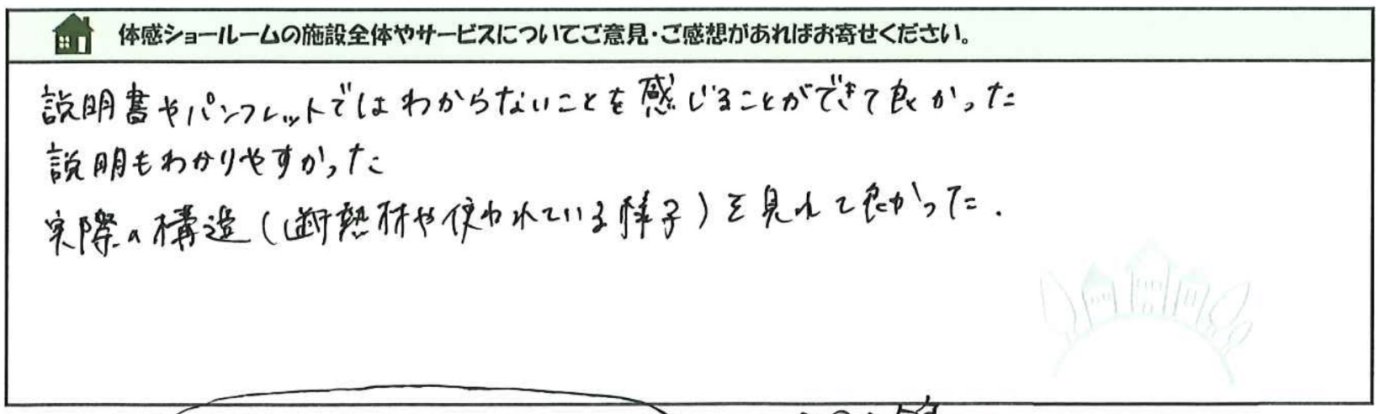 体感ショールームの施設全体やサービスについてご意見・ご感想があればお寄せください。
説明書やパンフレットではわからないことを感じることができて良かった
説明もわかりやすかった
実際の構造(断熱材や使われている様子)を見れて良かった.